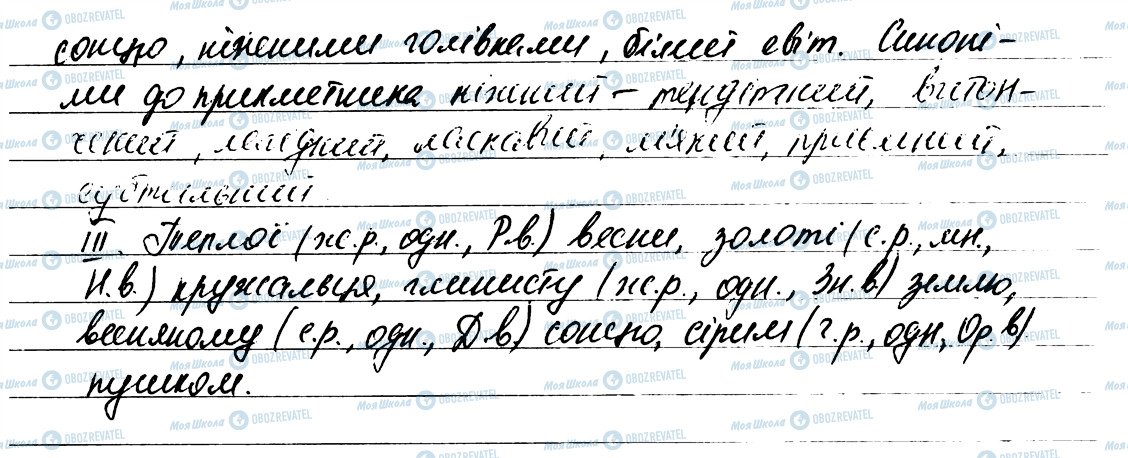 сонцю, ніжними голівками, білий світ. Синоні-
ми до прикметника ніжний – тендітний, витон-
чений, лагідний, ласкавий, м'який, приємний,
субтильний.
III. Теплої (ж.р., одн., Р.в.) весни, золоті (с.р., мн.,
Н.в.) кружальця, глинисту (ж.р., одн., Зн.в) землю,
весняному (с.р., одн., Д.в) сонцю, сірим (ч.р., одн, Ор.в)
пушком.